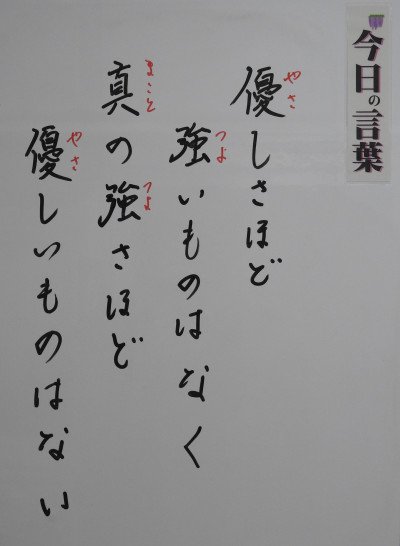 今日の言葉
優しさほど
やさ
強いものはなく
つよ
真の強さほど
まこと
つよ
優しいものはない
やさ